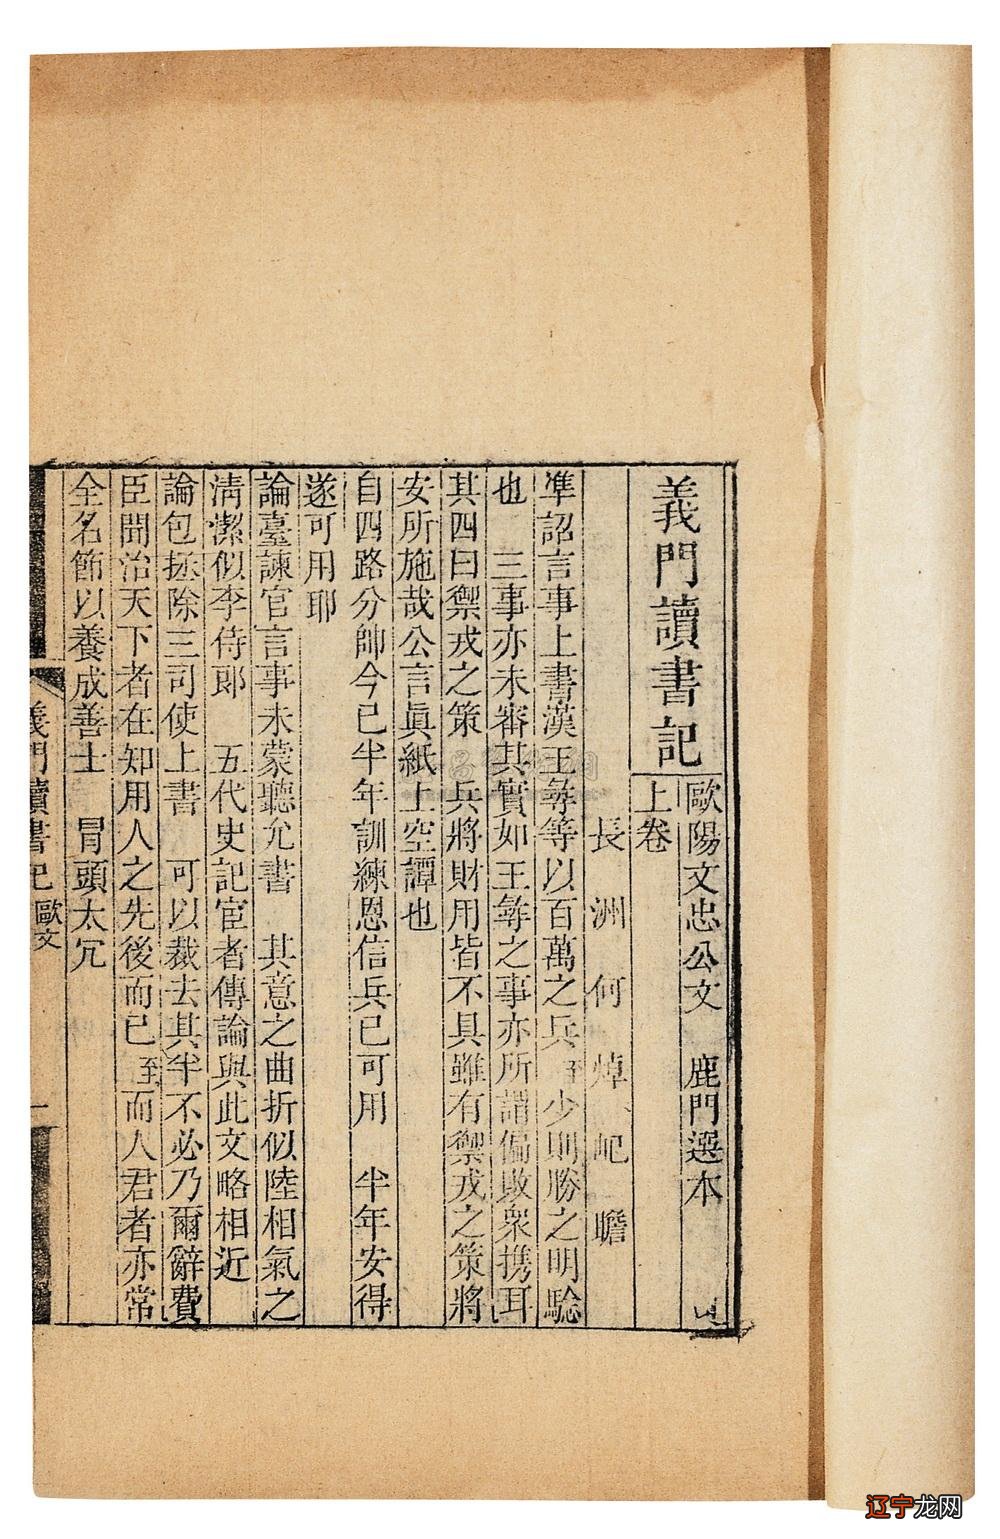 義門讀書記
歐陽文忠公文 鹿門選本
上卷
長洲何焯屺瞻
準詔言事上書漢王尋等以百萬之兵至少則勝之明驗
也 三事亦未審其實如王尋之事亦所謂偏敗衆携耳
其四曰禦戎之策 兵將財用皆不具雖有禦戎之策將
安所施哉公言眞紙上空譚也
自四路分帥今已半年訓練恩信兵已可用 半年安得
遂可用耶
論臺諫官言事未蒙聽允書 其意之曲折似陸相氣之
淸潔似李侍郎 五代史記宦者傳論與此文略相近
論包拯除三司使上書 可以裁去其半不必乃爾辭費
臣聞治天下者在知用人之先後而已至而人君者亦常
全名節以養成善士 冒頭太冗
義門讀書記 歐文
一
辽宁龙网